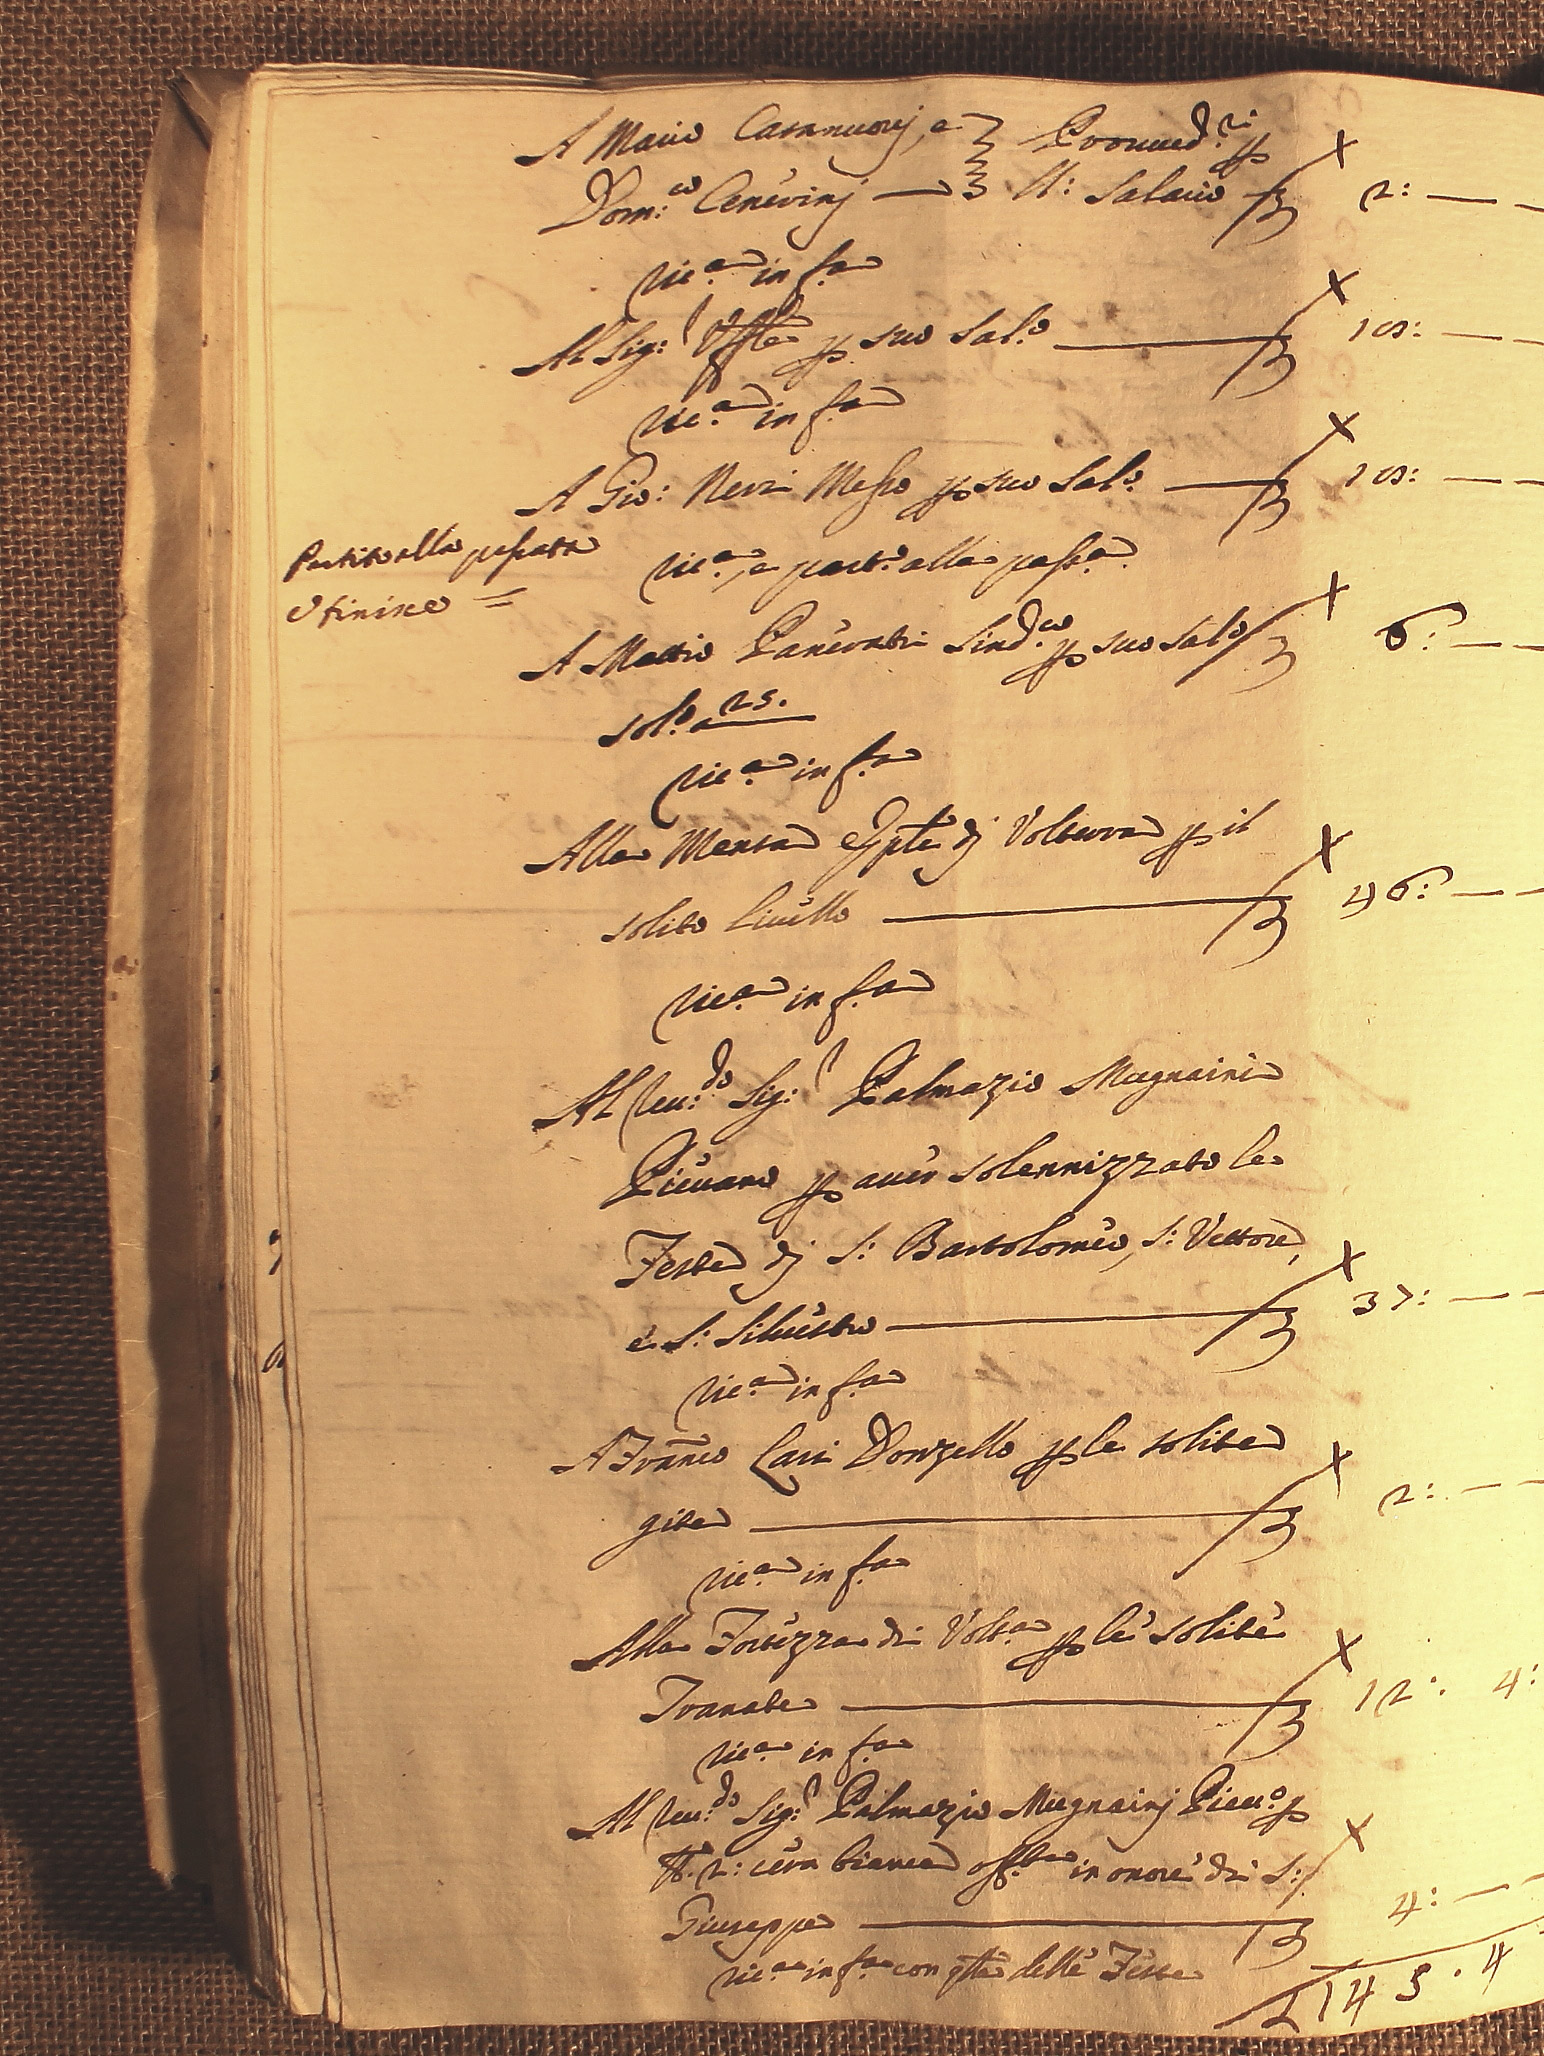 A Mario Casanuovj, e } Provved.ri p
Dom.co Cenerinj — } ll: Salario £ 2: —
ric.a in f.a
Al Sig:r Uffle p suo Sal.o £ 10: —
ric.a in f.a
A Gio: Nerri Messo p suo Sal.o £ 10: —
Partito alla passata
e finisce =
ric.a, e part.o alla pass.a
A Mattio Pancrabi Sind.co p suo Sal.o £ 6: —
sol.o a 25.
ric.a in f.a
Alla Mensa Epple dj Volterra p il
solito livello £ 46: —
ric.a in f.a
Al Reu:do Sig:r Palmazio Mugnaini
Pievano p aver solennizzato le
Feste dj S: Bartolomeo, S: Vettore,
e S: Silvestro £ 37: —
ric.a in f.a
A Franco Lari Donzello p le solite
gite £ 2: —
ric.a in f.a
Alla Fortezza di Volt.a p le solite
Tratte £ 12: 4:
ric.a in f.a
Al Reu:do Sig:r Palmazio Mugnainj Piev.o p
lb. 2: cera bianca off.ta in onore di S:
Giuseppe £ 4: —
ric.a in f.a con qta delle Feste
£ 145 . 4